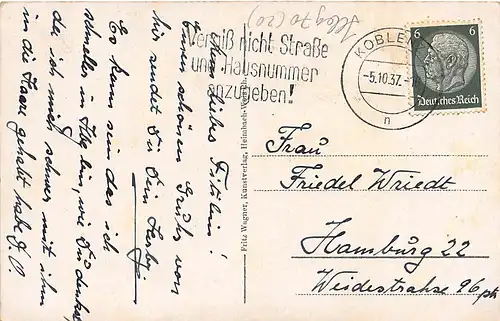 Vergiß nicht Straße
und Hausnummer
anzugeben!
KOBLENZ
-5.10.37.
n
6 6
Deutsches Reich
Mein liebes
Einen schönen Gruß von
hier sendet Dir Dein
Es kann sein das ich
schneller in Hbg bin, wie Du denkst,
da ich mich schwer mit ihm
in die Haare gehabt habe
Fritz Wagner, Kunstverlag, Heimbach-Weis
Frau
Friedel Wriedt
Hamburg 22
Weidestrahse 96 ptr